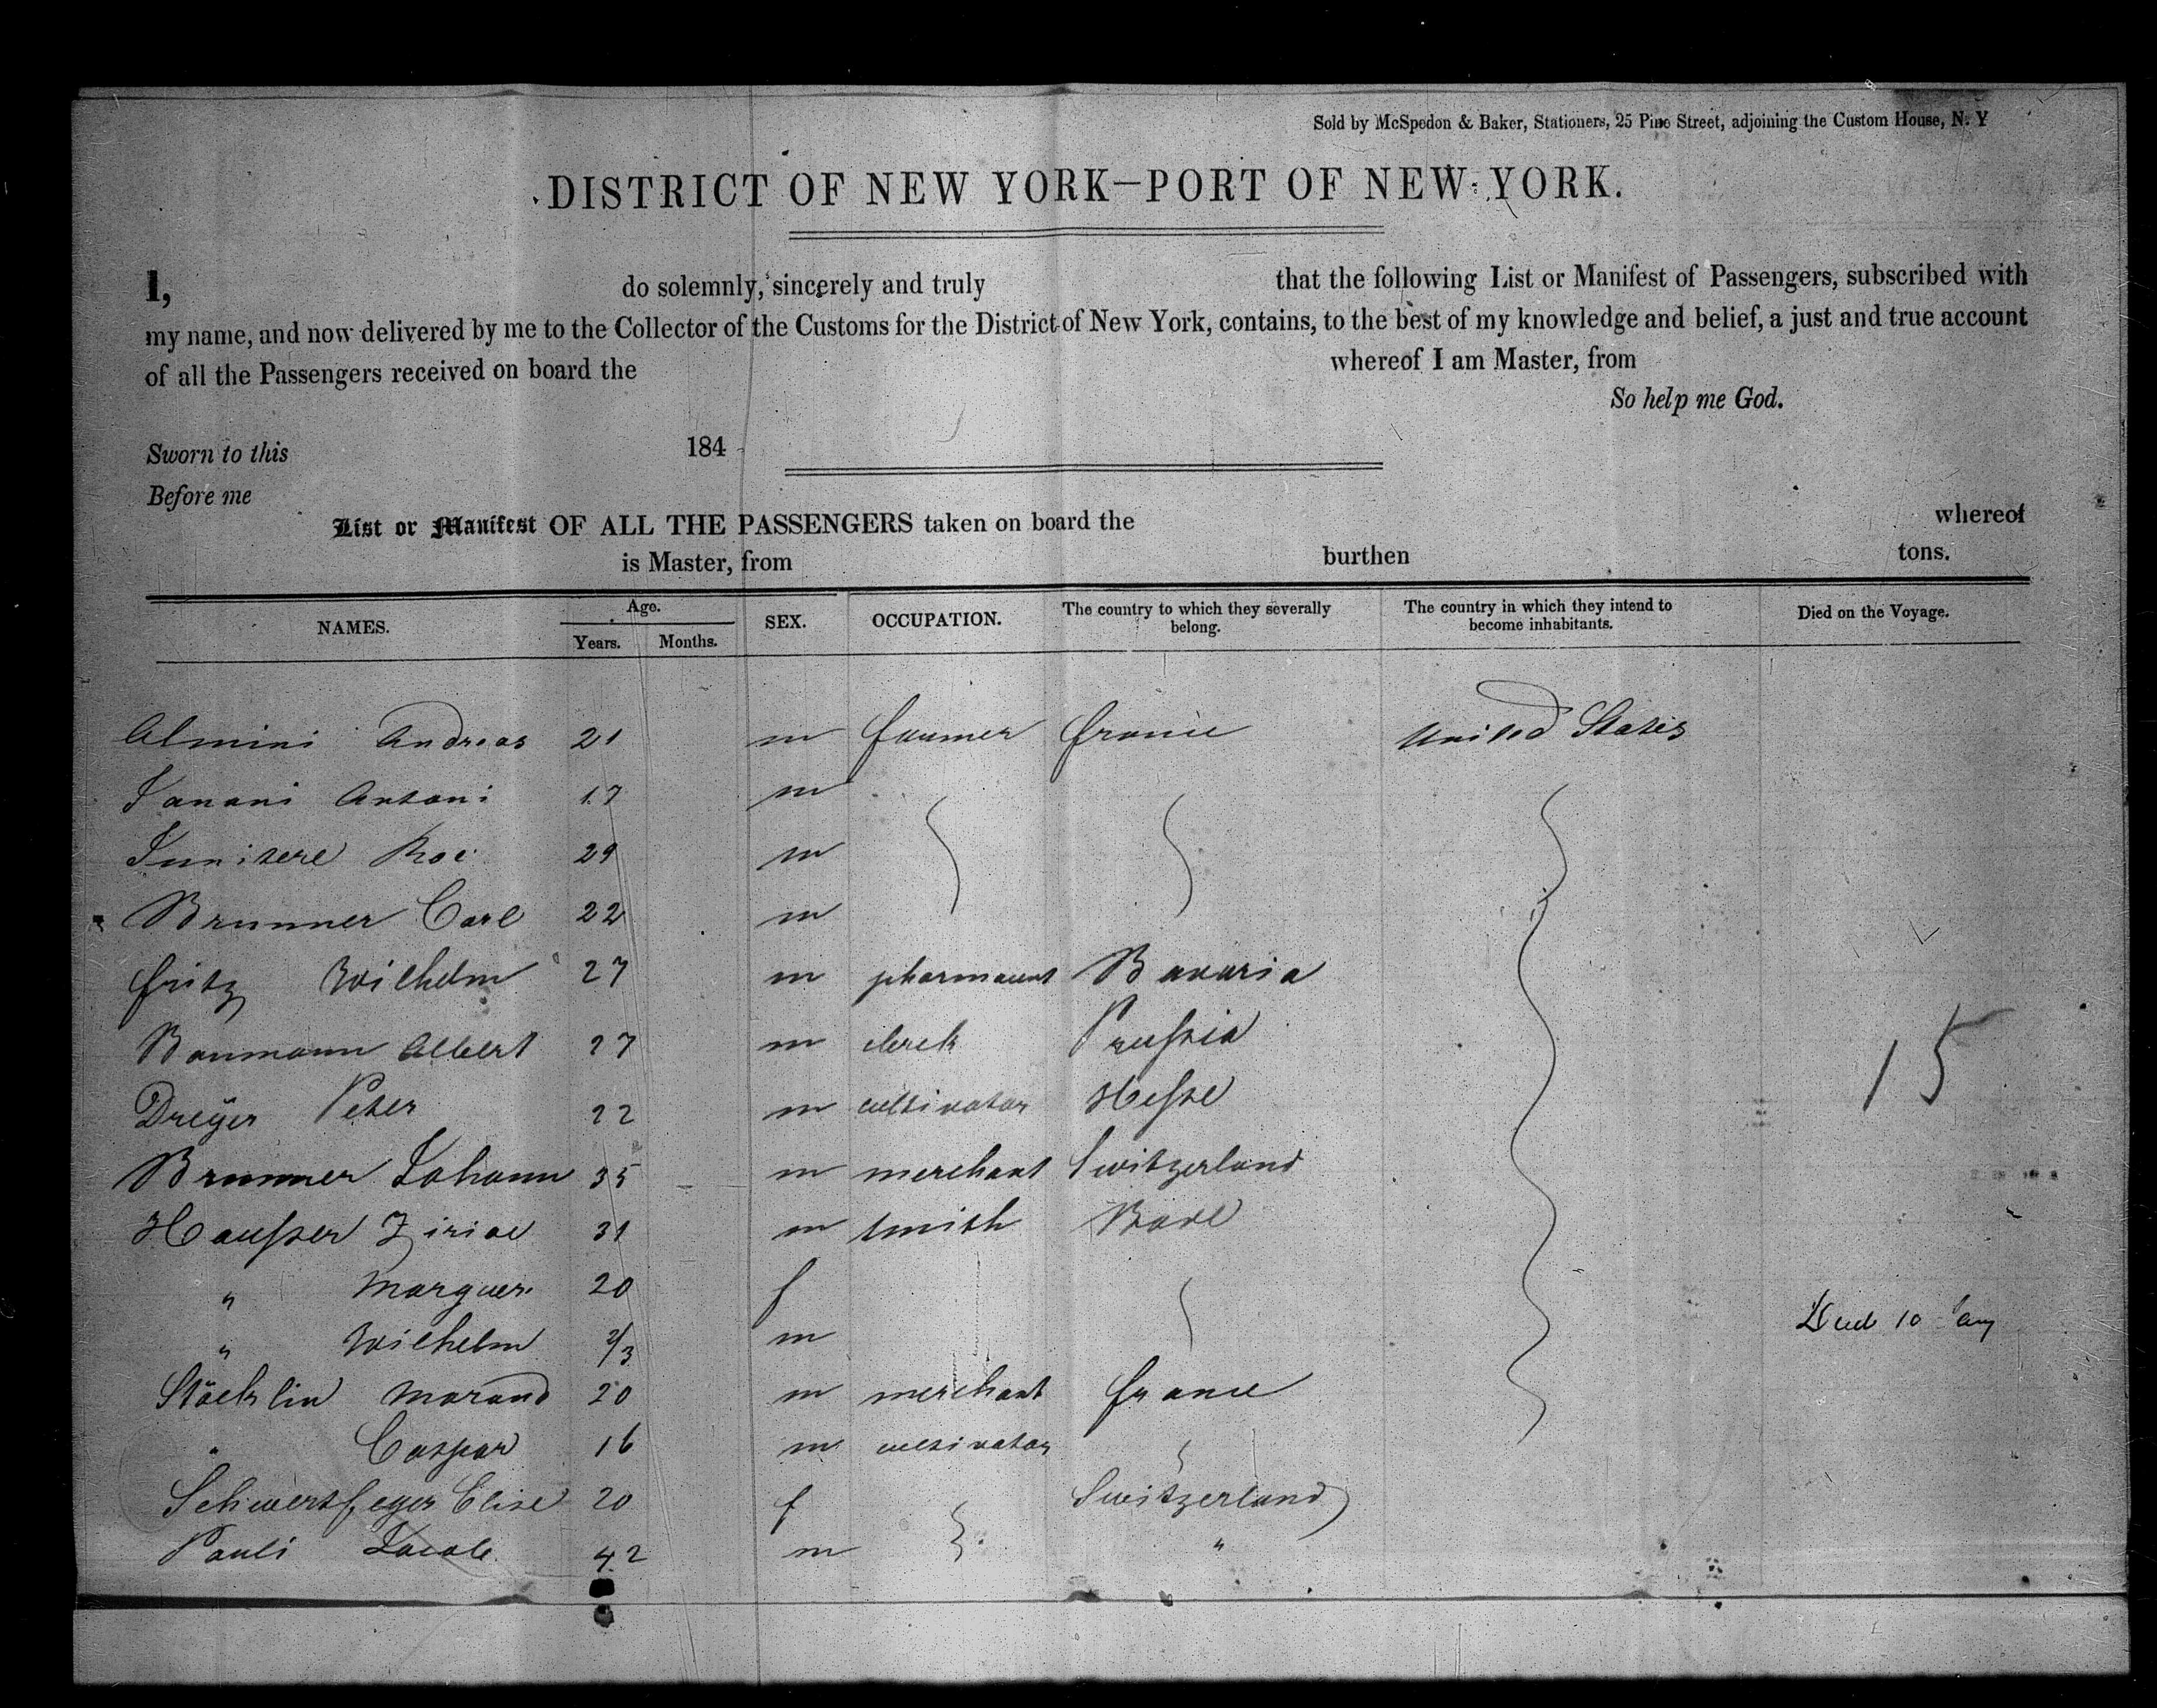 Sold by McSpedon & Baker, Stationers, 25 Pine Street, adjoining the Custom House, N. Y
DISTRICT OF NEW YORK—PORT OF NEW YORK.
I, do solemnly, sincerely and truly that the following List or Manifest of Passengers, subscribed with
my name, and now delivered by me to the Collector of the Customs for the District of New York, contains, to the best of my knowledge and belief, a just and true account
of all the Passengers received on board the whereof I am Master, from
So help me God.
Sworn to this 184
Before me
List or Manifest OF ALL THE PASSENGERS taken on board the whereof
is Master, from burthen tons.
NAMES. Age. Years. Months. SEX. OCCUPATION. The country to which they severally belong. The country in which they intend to become inhabitants. Died on the Voyage.
Almini Andreas 21 m farmer france United States
Antoni 17 m
29 m
Brunner Carl 22 m
fritz Wilhelm 27 m Bavaria
Baumann Albert 27 m clerk Prussia
Dreÿer Peter 22 m cultivator Hesse
15
Brunner Johann 35 m merchant Switzerland
Hausser Ziriac 31 m smith Bade
" Marguer. 20 f
" Wilhelm 2/3 m Died 10 Jany
Stöcklin Morand 20 m merchant france
" Caspar 16 m cultivator
Schwertfeger Elise 20 f Switzerland
Pauli Jacob 42 m "